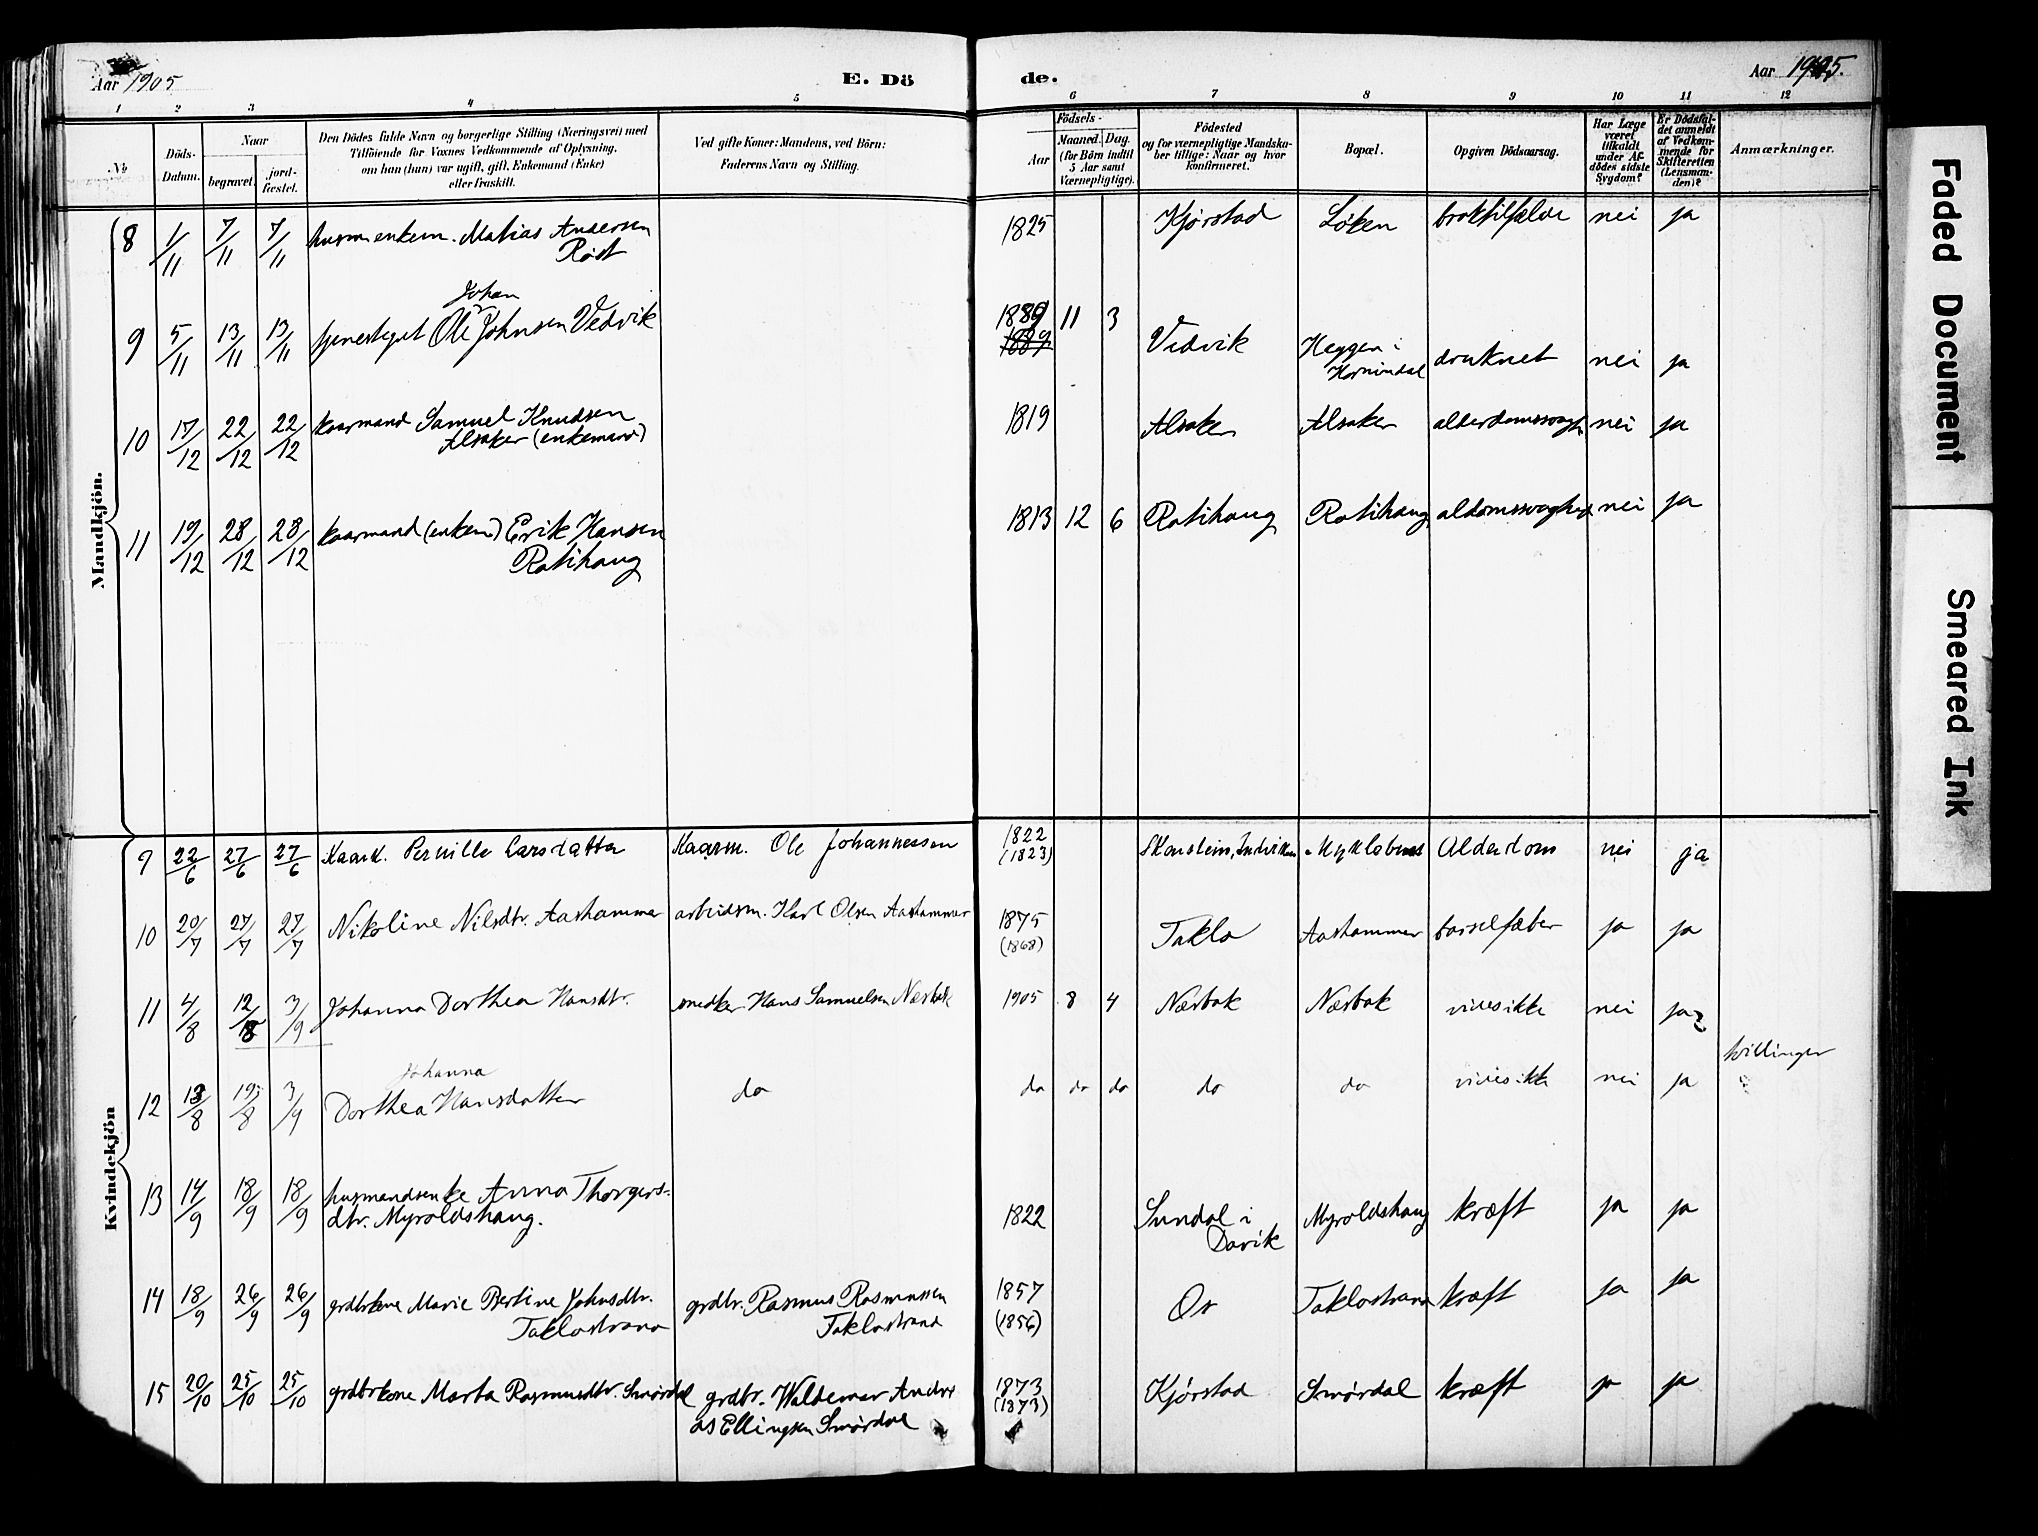 Aar 1905
E. Dö
de.
Aar 1905.
1 2 3 4 5 6 7 8 9 10 11 12
No
Döds-
Datum.
Naar
begravet.
jord-
fæstet.
Den Dödes fulde Navn og borgerlige Stilling (Næringsvei) med
Tilföiende for Voxnes Vedkommende af Oplysning,
om han (hun) var ugift, gift, Enkemand (Enke)
eller fraskilt.
Ved gifte Koner: Mandens, ved Börn:
Faderens Navn og Stilling.
Födsels-
Aar
Maaned.
Dag.
(for Börn indtil
5 Aar samt
Værnepligtige).
Födested
og for værnepligtige Mandska-
ber tillige: Naar og hvor
konfirmeret.
Bopæl.
Opgiven Dödsaarsag.
Har Læge
været
tilkaldt
under Af-
dödes sidste
Sygdom?
Er Dödsfal-
det anmeldt
af Vedkom-
mende for
Skifteretten
(Lensman-
den)?
Anmærkninger.
Mandkjön.
8 1/11 7/11 7/11 husm.enkem. Matias Andersen 1825 Kjørstad Løken broktilfælde nei ja
Rødt
Johan
9 5/11 13/11 13/11 tjenestegut Ole Johnsen Vedvik 1889 11 3 Vedvik Heggen i druknet nei ja
1889
Hornindal
10 17/12 22/12 22/12 kaarmand Samuel Knudsen 1819 Alsaker Alsaker alderdomssvagh. nei ja
Alsaker (enkemand)
11 19/12 28/12 28/12 kaarmand (enkem) Erik Hansen 1813 12 6 Ratihaug Ratihaug aldomssvaghed nei ja
Ratihaug
Kvindekjön
9 22/6 27/6 27/6 Kaark. Pernille Larsdatter Kaarm. Ole Johannessen 1822 Skarstein, Indviken Myklebust Alderdom nei ja
(1823)
10 20/7 27/7 27/7 Nikoline Nilsdtr. Aashammer arbeidsm. Karl Olsen Aashammer 1875 Taklo Aashammer barselfeber ja ja
(1868)
11 4/8 12/8 3/9 Johanna Dorthea Hansdtr. snedker Hans Samuelsen Nærbak 1905 8 4 Nærbak Nærbak vides ikke nei ja
tvillinger
Johanna
12 13/8 19/8 3/9 Dorthea Hansdatter do do do do do do vides ikke nei ja
13 14/9 18/9 18/9 husmandsenke Anna Thorgers-
dtr. Myroldshaug. 1822 Sundal i Myroldshaug kræft ja ja
Davik
14 18/9 26/9 26/9 grdbrkone Marie Bertine Johnsdtr. grdbr. Rasmus Rasmussen 1857 Os Taklostrand kræft ja ja
Taklostrand Taklostrand (1856)
15 20/10 25/10 25/10 grdbrkone Marta Rasmusdtr. Smørdal grdbr. Waldemar Andre 1873 Kjørstad Smørdal kræft ja ja
as Ellingsen Smørdal (1873)
Faded Document
Smeared Ink